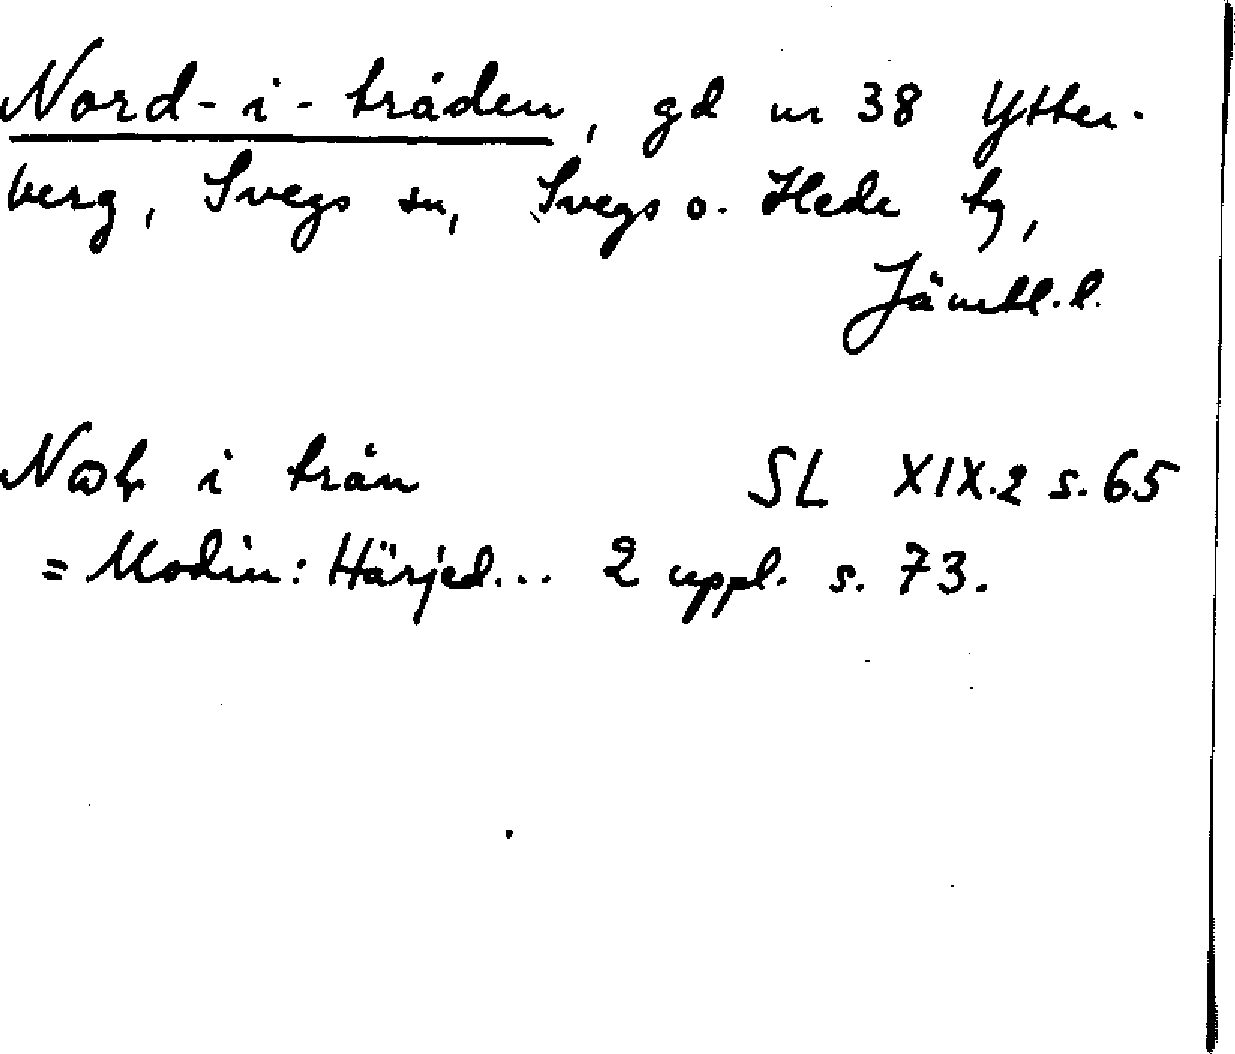 Nord-i-tråden, gd nr 38 Ytter-
berg, Svegs sn, Svegs o. Hede tg,
Jämtl. l.
i trån SL XIX.2 s. 65
= Modin: Härjed... 2 uppl. s. 73.